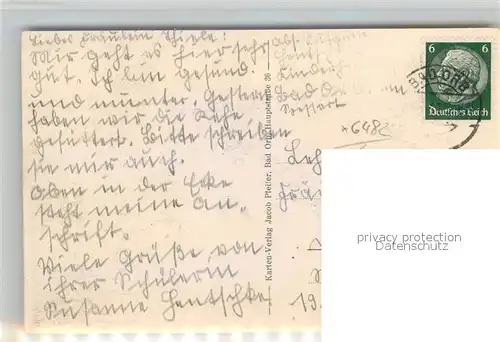 Liebes Fräulein Thiele!
Mir geht es hier sehr
gut. Ich bin gesund
und munter. Gestern
haben wir die Rehe
gefüttert. Bitte schreiben
sie mir auch.
Oben in der Ecke
steht meine An-
schrift.
Viele Grüße von
ihrer Schülerin
Susanne Hentschke.
Abs.
Kinderh
Bad
Spessart
Karten-Verlag Jacob Pfeifer, Bad Orb, Hauptstraße 36
6 6
Deutsches Reich
Leh
Frä
19
privacy protection
Datenschutz